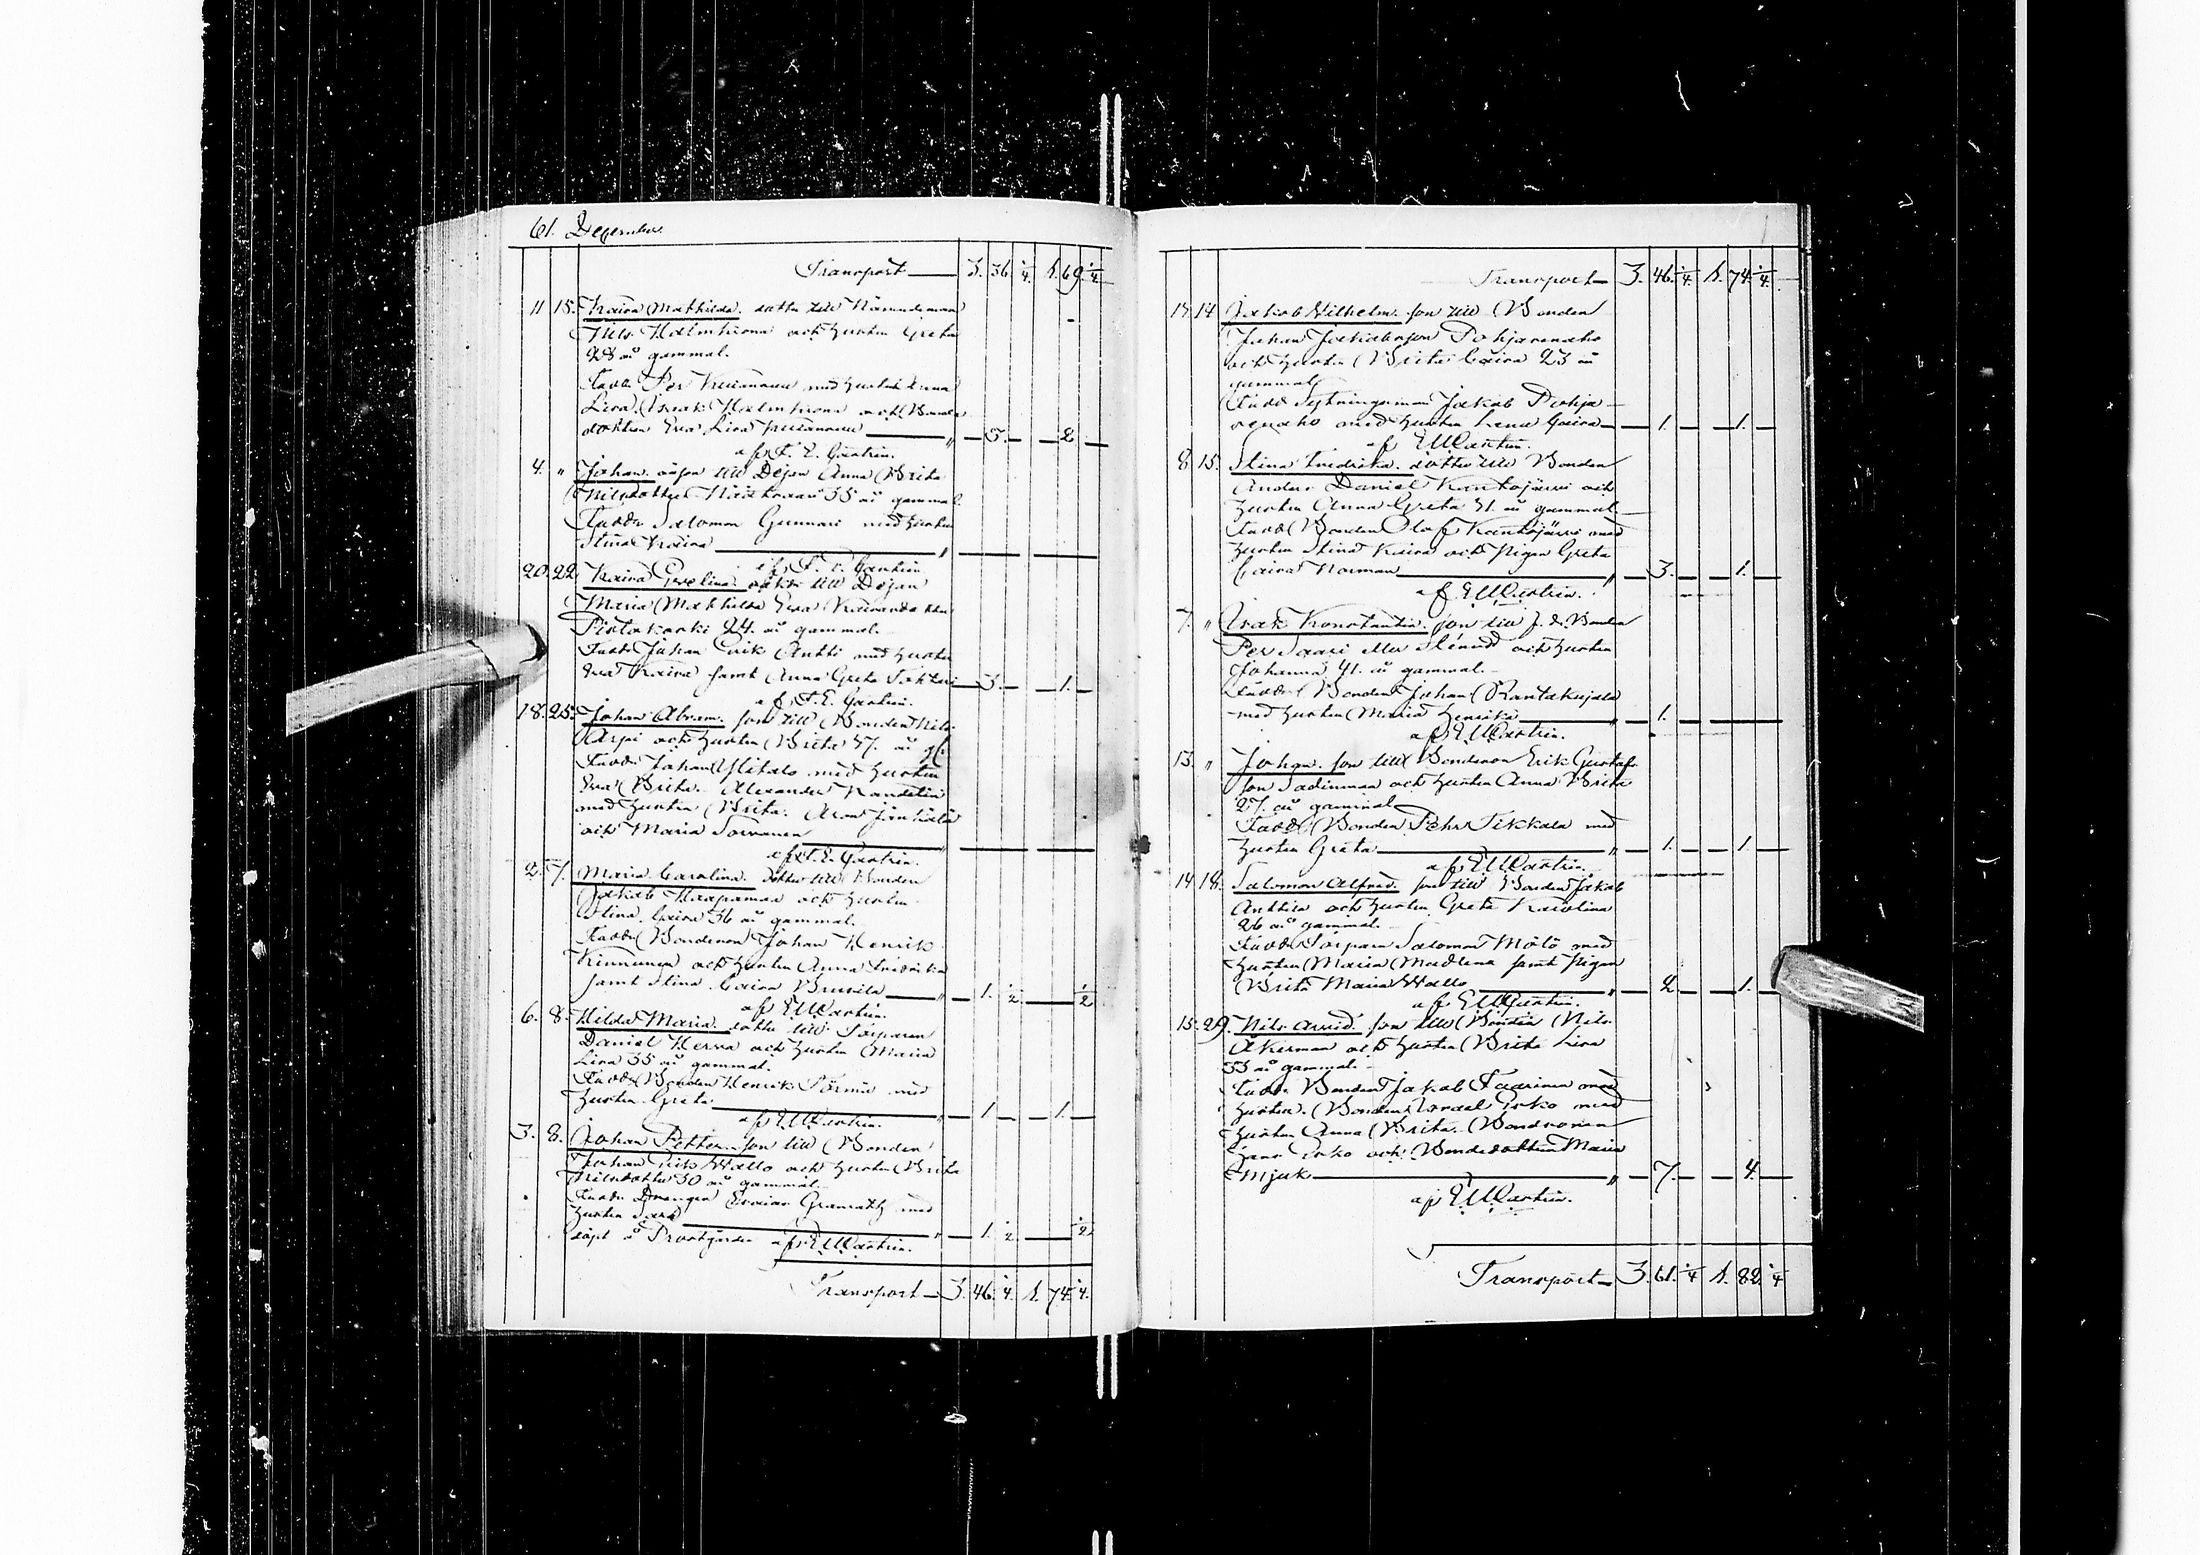 61. December
Transport — 3. 36. 1/4 S. 69. 1/4
11 15. Kaisa Mathilda. dotter till Nämndeman
Nils Halmkrona och hustru Greta
28 år gammal.
Fadd. Per med hustru Anna
Lisa. Isaak Halmkrona och Bonde
dottern Eva Lisa — " — 5. — 2. —
af F. E. Castrén.
4. " Johan. oä son till Dejan Anna Brita
Nilsdotter 35 år gammal.
Fadd. Salomon Gunnari med hustru
Stina Kaisa — "
af F. E. Castrén.
20. 22. Kaisa Evelina. dotter till Dejan
Maria Mathilda Eva
24. år gammal.
Fadd. Johan Erik Antti med hustru
Eva Kaisa samt Anna Greta — 3. — 1. —
af F. E. Castrén.
18. 25. Johan Abram. son till Bonden Nils
Arpi och hustru Brita 37. år gl.
Fadd. Johan Ylitalo med hustru
Eva Brita. Alexander Kandelin
med hustru Brita. Aron
och Maria — "
af F. E. Castrén.
2. 7. Maria Carolina. Dotter till Bonden
Jakob Haapamaa och hustru
Stina Caisa 36 år gammal.
Fadd. Bondeson Johan Henrik
Kinnunen och hustru Anna Fredrika
samt Stina Caisa — " — 1. 1/2 — 1/2
af E. W. Castrén.
6. 8. Hilda Maria. dotter till Torparen
Daniel Herva och hustru Maria
Lisa 35 år gammal.
Fadd. Bonden Henrik Törmä med
hustru Greta — " — 1. — 1. —
af E. W. Castrén.
3. 8. Johan Petter. son till Bonden
Johan Erik Wallo och hustru Brita
Nilsdotter 30 år gammal.
Fadd. Drengen Esaias Granrath med
hustru Sara — " — 1. 1/2 — 1/2
döpt å Prostgården af E. W. Castrén.
Transport — 3. 46. 1/4. S. 74. 1/4.
Transport — 3. 46. 1/4 S. 74. 1/4
14 Jakob Vilhelm. son till Bonden
Johan Jakobsson Pohjanenaho
och hustru Brita Caisa 23 år
gammal.
Fadd. Jakob Pohja-
nenaho med hustru Lena Caisa — 1. — 1. —
af E. W. Castrén.
8. 15. Stina Fredrika. dotter till Bonden
Anders Daniel Kantojärvi och
hustru Anna Greta 31. år gammal.
Fadd. Bonden Olof Kantojärvi med
hustru Stina Kaisa och Pigan Greta
Caisa Norman — " — 3. — 1. —
af E. W. Castrén.
7. " Isak Konstantin. son till f. d. Bonden
Per Saari eller och hustru
Johanna 41. år gammal.
Fadd. Bonden Johan Rantakujala
med hustru Maria Henrika — " — 1. —
af E. W. Castrén.
13. " Johan. son till Bondeson Erik Gustaf-
son Sadinmaa och hustru Anna Brita
27. år gammal
Fadd. Bonden Pehr Tikkala med
hustru Greta — " — 1. — 1. —
af E. W. Castrén.
14 18. Salomon Alfred. son till Bonden Jakob
Anttila och hustru Greta Karolina
26 år gammal.
Fadd. Torparn Salomon Mölö med
hustru Maria Madlena samt Pigan
Brita Maria Wallo — " — 2 — 1. —
af E. W. Castrén.
15. 29. Nils Arvid. son till Bonden Nils
Åkerman och hustru Brita Lisa
33 år gammal.
Fadd. Bonden Jakob Faarinen med
hustru. Bonden Israel Esko med
hustru Anna Brita. Bondesonen
Hans Esko och Bondedottern Maria
Mjuk — " — 7. — 4. —
af E. W. Castrén.
Transport — 3. 61. 1/4 S. 82. 1/4